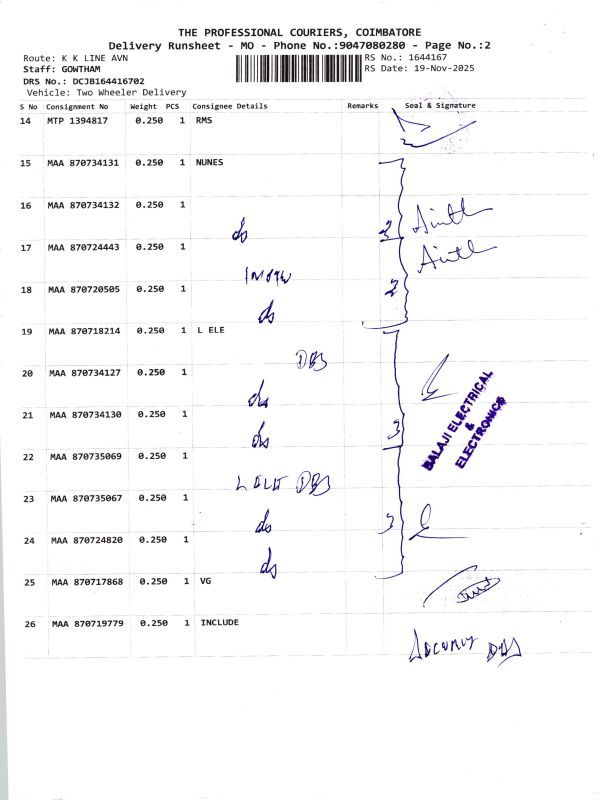 THE PROFESSIONAL COURIERS, COIMBATORE
Delivery Runsheet - MO - Phone No.:9047080280 - Page No.:2
Route: K K LINE AVN
RS No.: 1644167
Staff: GOWTHAM
RS Date: 19-Nov-2025
DRS No.: DCJB164416702
Vehicle: Two Wheeler Delivery
S No Consignment No Weight PCS Consignee Details Remarks Seal & Signature
14 MTP 1394817 0.250 1 RMS
15 MAA 870734131 0.250 1 NUNES
16 MAA 870734132 0.250 1
ds 2
17 MAA 870724443 0.250 1
18 MAA 870720505 0.250 1
2
ds
19 MAA 870718214 0.250 1 L ELE
DBS
20 MAA 870734127 0.250 1
ds
21 MAA 870734130 0.250 1
ds 3
BALAJI ELECTRICAL
&
ELECTRONICS
22 MAA 870735069 0.250 1
DBS
23 MAA 870735067 0.250 1
ds 3
24 MAA 870724820 0.250 1
ds
25 MAA 870717868 0.250 1 VG
26 MAA 870719779 0.250 1 INCLUDE